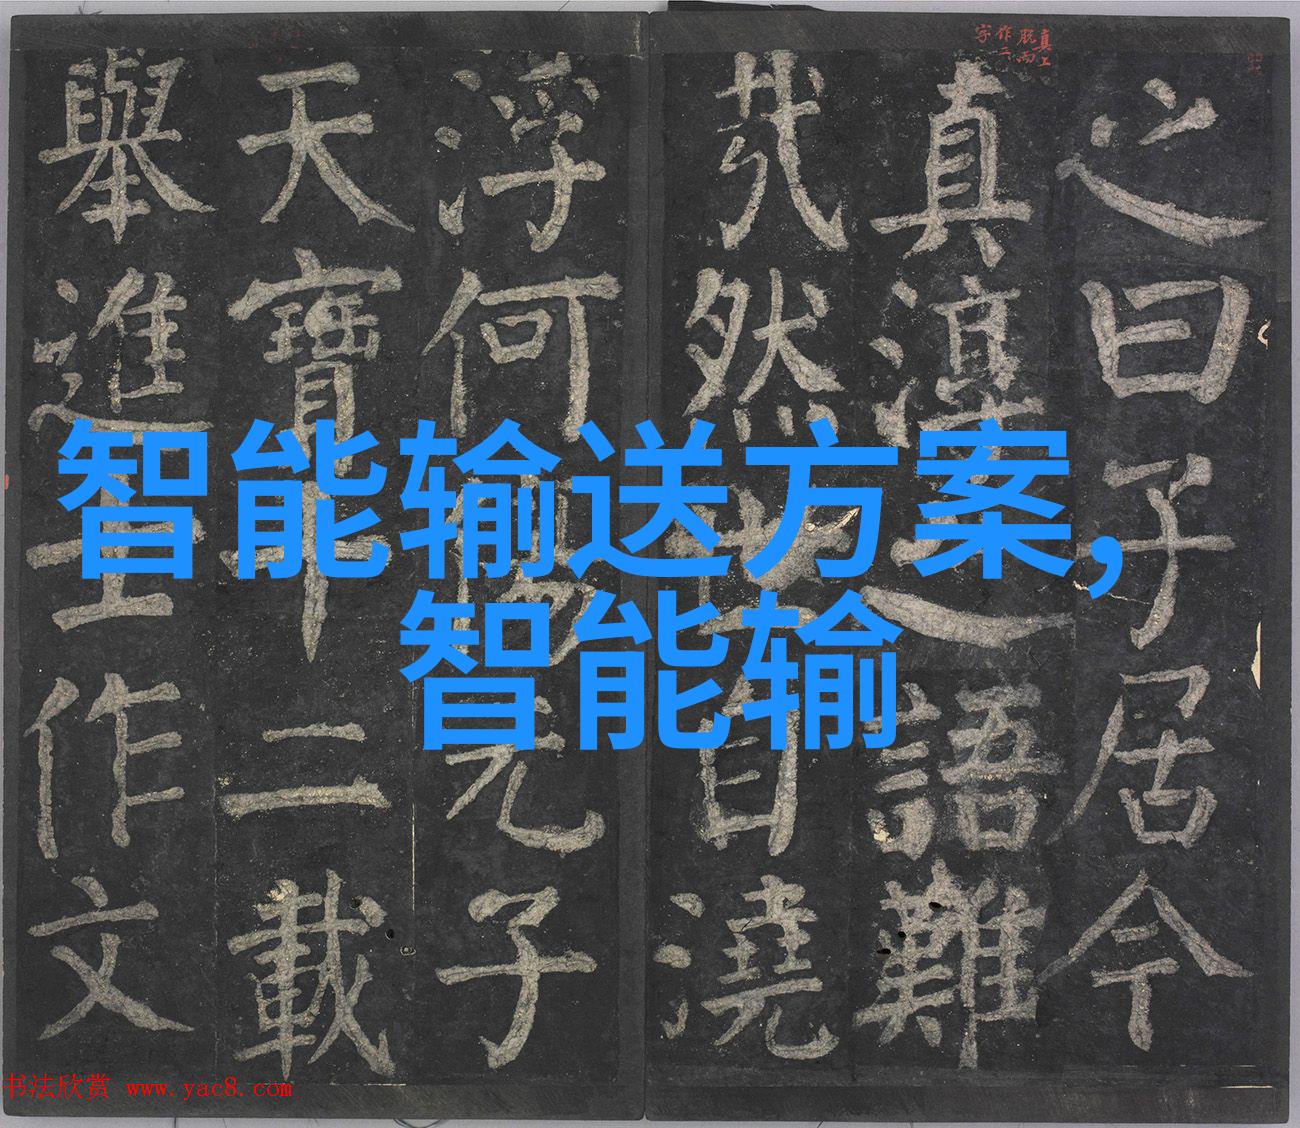 智能输送方案,
智能输
真上
脱而
作二
字
之曰子居今
真淳之語難
哉然世自澆
浮何傷元子
天寶十二載
舉進士作文
书法欣赏 www.yac8.com